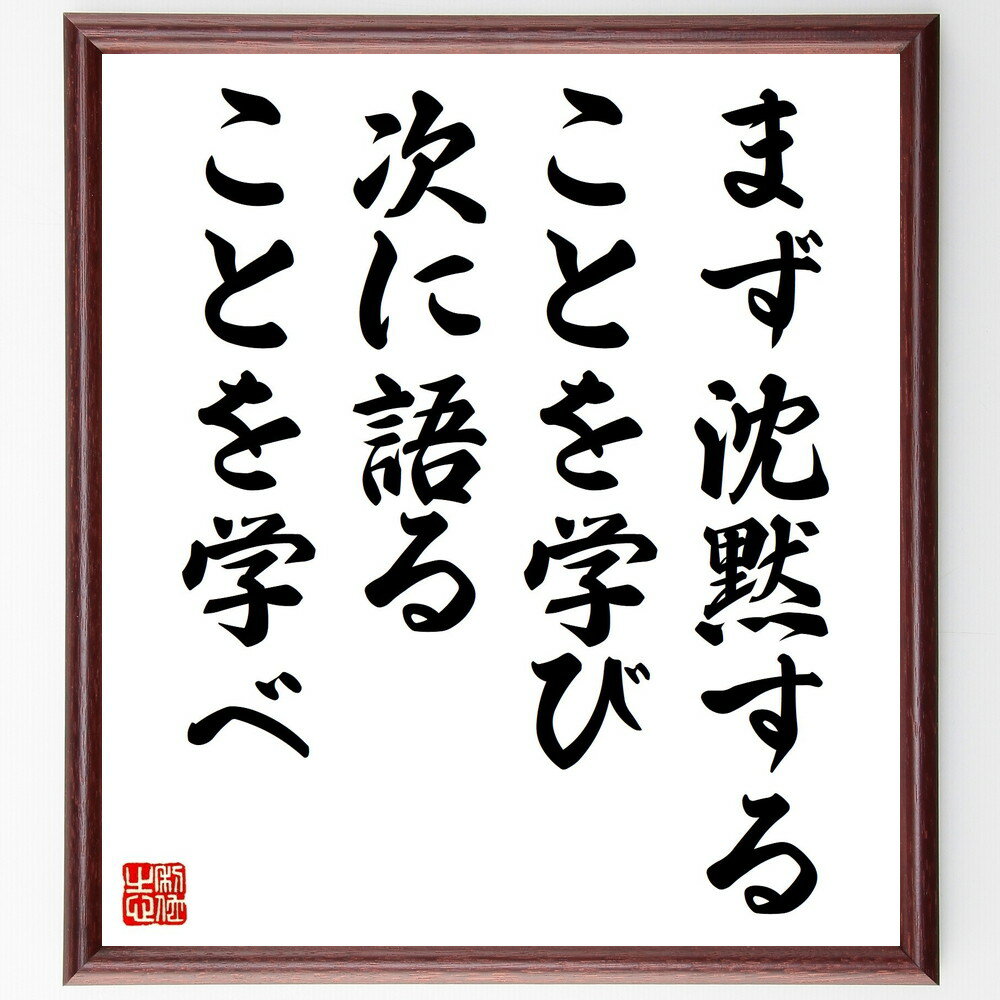 まず沈黙する
ことを学び
次に語る
ことを学べ